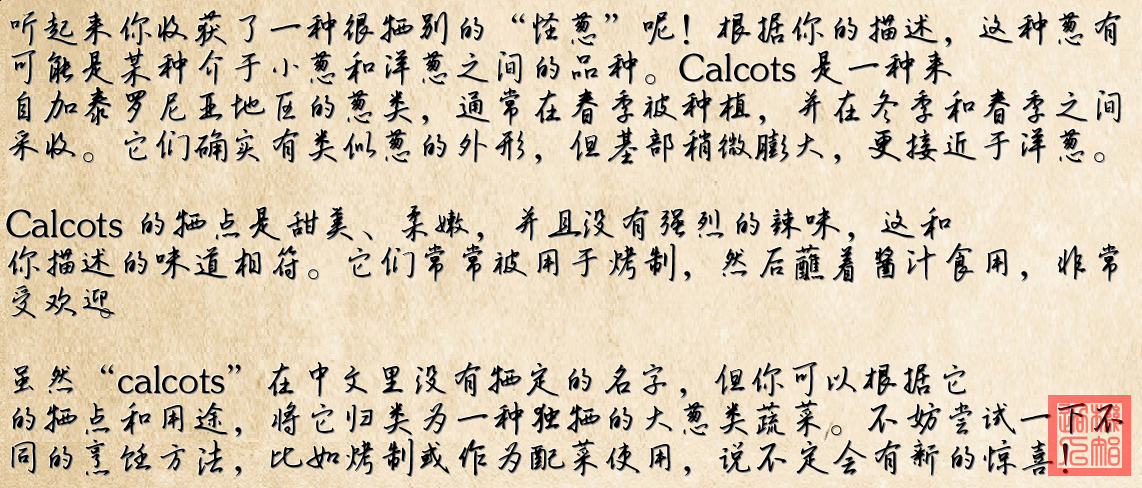 听起来你收获了一种很特别的“怪葱”呢！根据你的描述，这种葱有
可能是某种介于小葱和洋葱之间的品种。Calcots 是一种来
自加泰罗尼亚地区的葱类，通常在春季被种植，并在冬季和春季之间
采收。它们确实有类似葱的外形，但基部稍微膨大，更接近于洋葱。
Calcots 的特点是甜美、柔嫩，并且没有强烈的辣味，这和
你描述的味道相符。它们常常被用于烤制，然后蘸着酱汁食用，非常
受欢迎。
虽然“calcots”在中文里没有特定的名字，但你可以根据它
的特点和用途，将它归类为一种独特的大葱类蔬菜。不妨尝试一下不
同的烹饪方法，比如烤制或作为配菜使用，说不定会有新的惊喜！